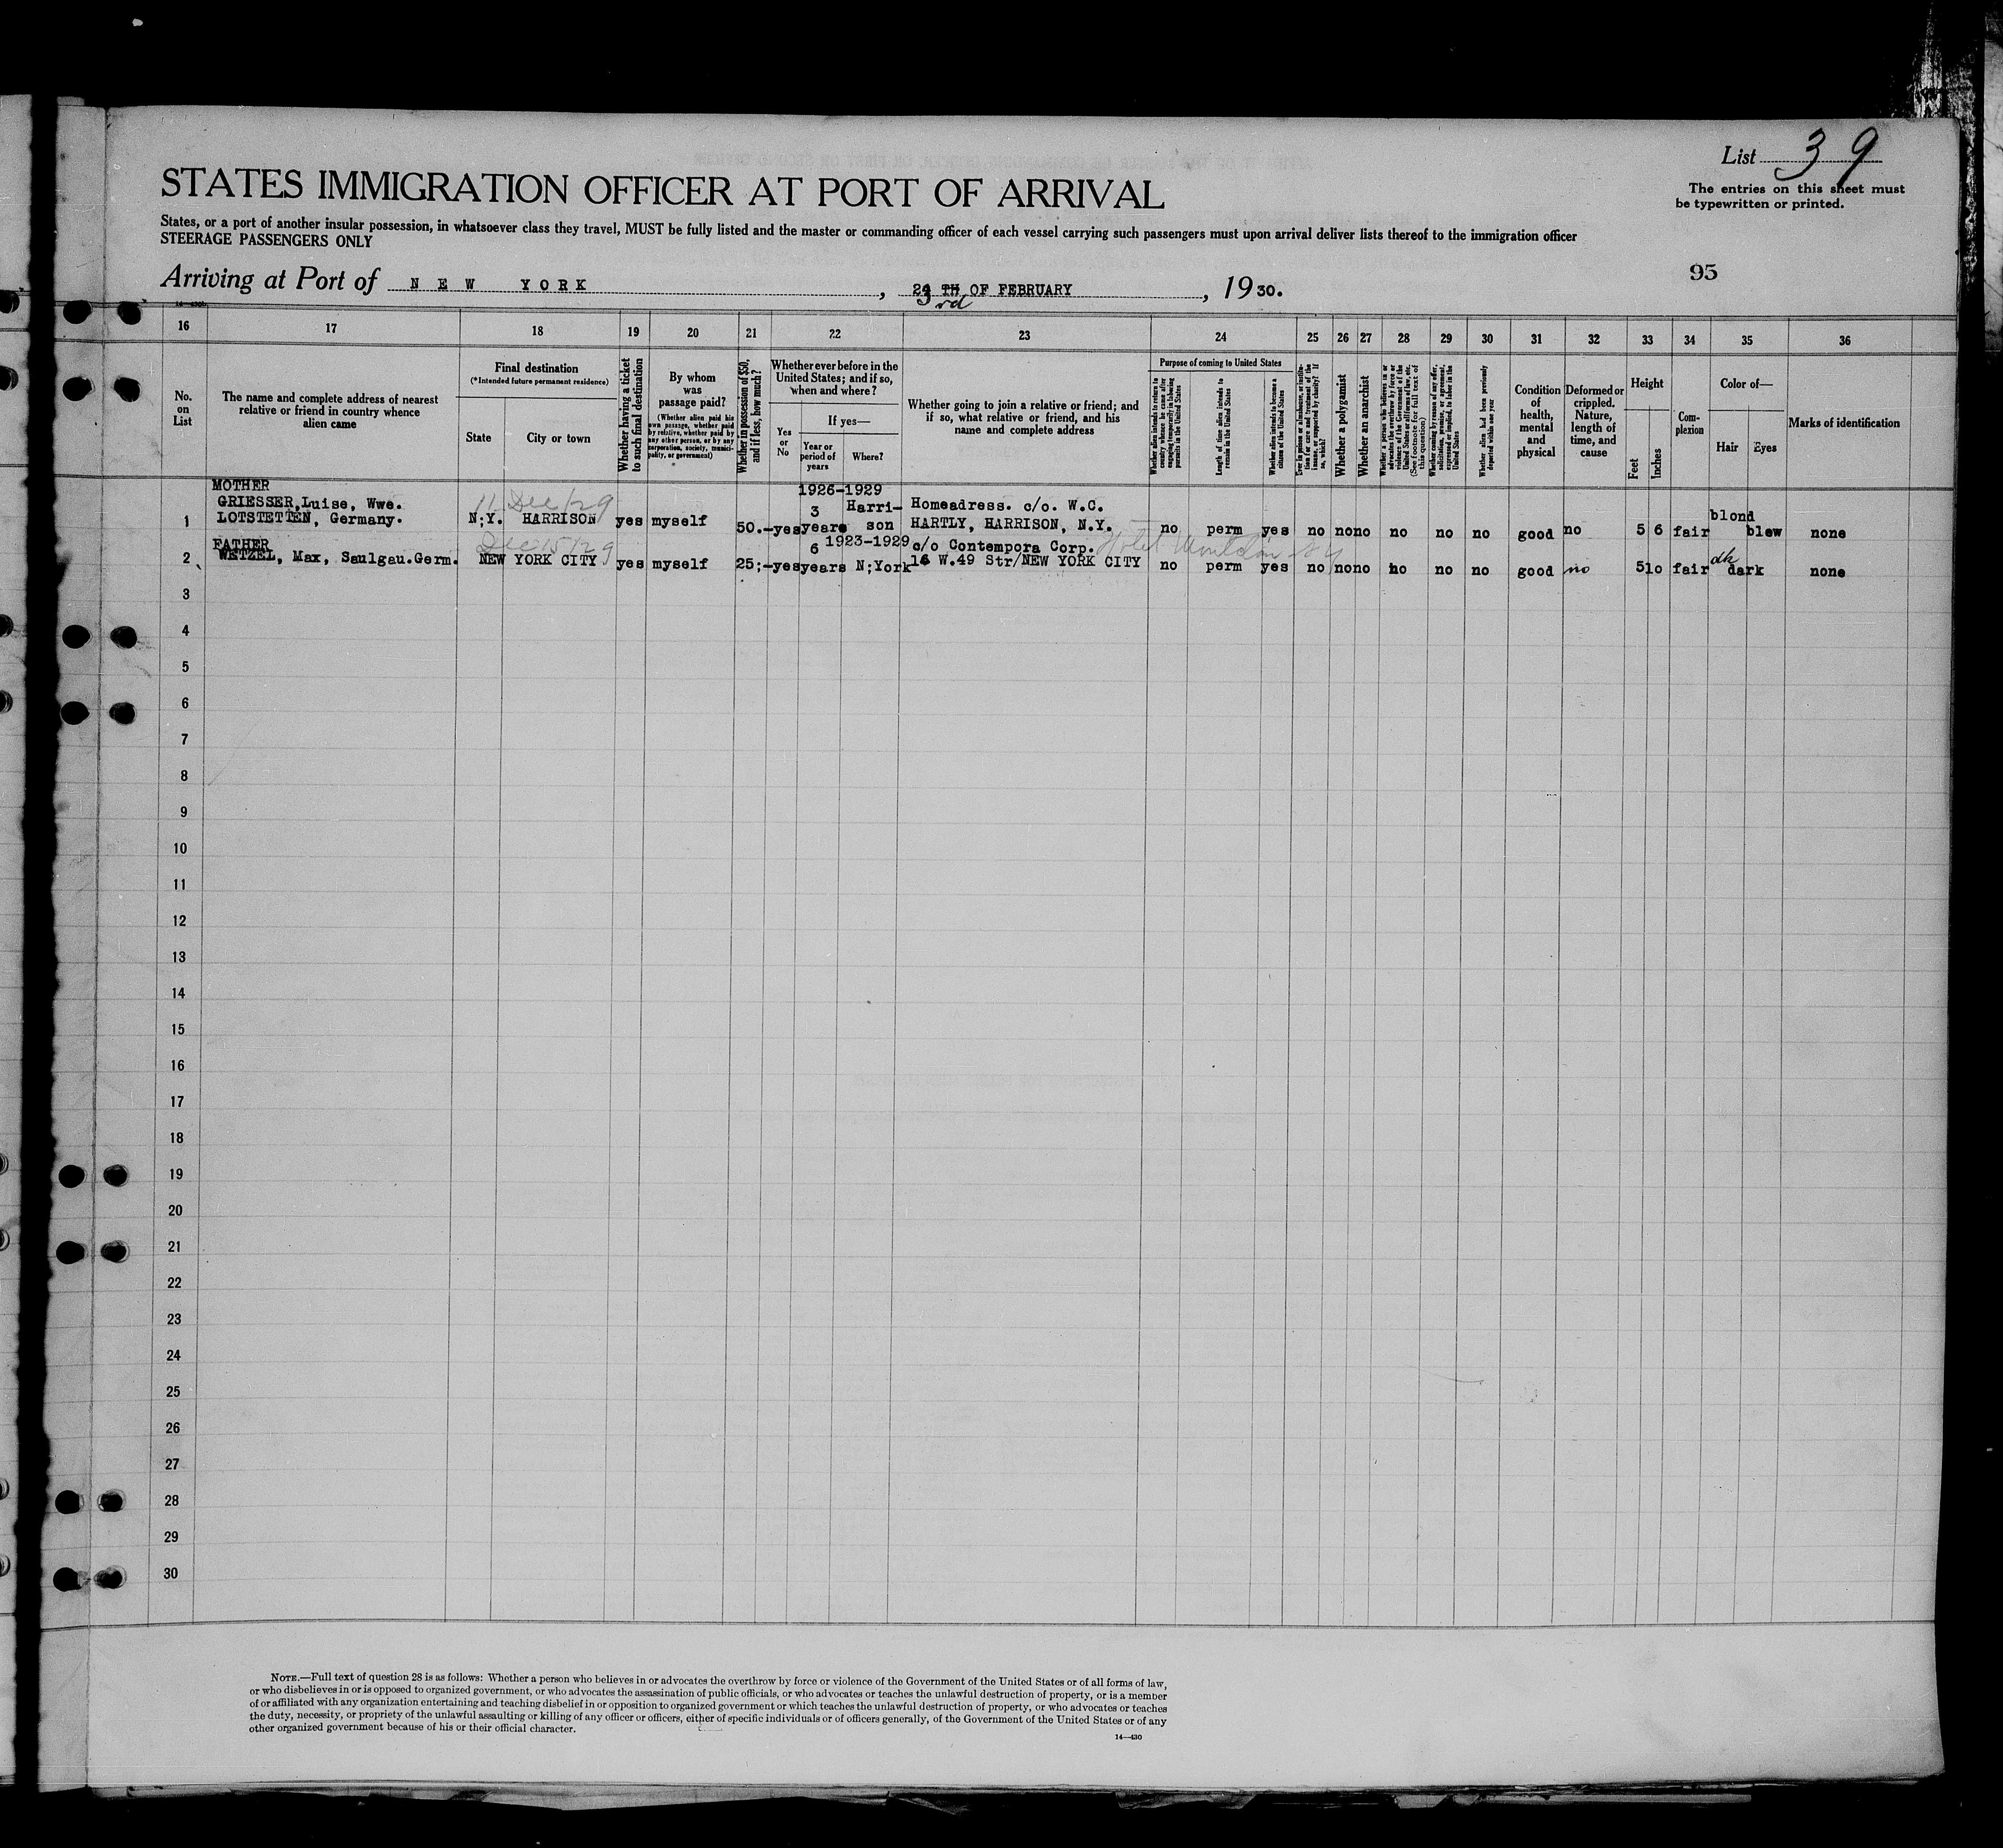 List 39
The entries on this sheet must
be typewritten or printed.
STATES IMMIGRATION OFFICER AT PORT OF ARRIVAL
States, or a port of another insular possession, in whatsoever class they travel, MUST be fully listed and the master or commanding officer of each vessel carrying such passengers must upon arrival deliver lists thereof to the immigration officer
STEERAGE PASSENGERS ONLY
95
Arriving at Port of NEW YORK, TH OF FEBRUARY, 1930.
3rd
16 17 18 19 20 21 22 23 24 25 26 27 28 29 30 31 32 33 34 35 36
No. on List
The name and complete address of nearest
relative or friend in country whence
alien came
Final destination
(*Intended future permanent residence)
State
City or town
Whether having a ticket
to such final destination
By whom
was
passage paid?
(Whether alien paid his
own passage, whether paid
by relative, whether paid by
any other person, or by any
corporation, society, munici-
pality, or government)
Whether in possession of $50,
and if less, how much?
Whether ever before in the
United States; and if so,
when and where?
If yes—
Yes
or
No
Year or
period of
years
Where?
Whether going to join a relative or friend; and
if so, what relative or friend, and his
name and complete address
Purpose of coming to United States
Whether alien intends to return to
country whence he came after
engaging temporarily in laboring
pursuits in the United States
Length of time alien intends to
remain in the United States
Whether alien intends to become a
citizen of the United States
Ever in prison or almshouse, or institu-
tion for care and treatment of the
insane, or supported by charity? If
so, which?
Whether a polygamist
Whether an anarchist
Whether a person who believes in or
advocates the overthrow by force or
violence of the Government of the
United States or all forms of law, etc.
(See footnote for full text of
this question)
Whether coming by reason of any offer,
solicitation, promise, or agreement,
expressed or implied, to labor in the
United States
Whether alien had been previously
deported within one year
Condition
of
health,
mental
and
physical
Deformed or
crippled.
Nature,
length of
time, and
cause
Height
Feet
Inches
Com-
plexion
Color of—
Hair
Eyes
Marks of identification
MOTHER 11 Dec/29 1926-1929
GRIESSER, Luise, Wwe. 3 Harri- Homeadress. c/o. W.C.
1 LOTSTETTEN, Germany. N;Y. HARRISON yes myself 50.- yes years son HARTLY, HARRISON, N.Y. no perm yes no no no no no no good no 5 6 fair blond blew none
FATHER Dec 15/29 6 1923-1929 c/o Contempora Corp. Hotel
2 WETZEL, Max, Saulgau.Germ. NEW YORK CITY yes myself 25;- yes years N;York W.49 Str/NEW YORK CITY no perm yes no no no no no no good no 5 10 fair dk dark none
3
4
5
6
7
8
9
10
11
12
13
14
15
16
17
18
19
20
21
22
23
24
25
26
27
28
29
30
NOTE.—Full text of question 28 is as follows: Whether a person who believes in or advocates the overthrow by force or violence of the Government of the United States or of all forms of law,
or who disbelieves in or is opposed to organized government, or who advocates the assassination of public officials, or who advocates or teaches the unlawful destruction of property, or is a member
of or affiliated with any organization entertaining and teaching disbelief in or opposition to organized government or which teaches the unlawful destruction of property, or who advocates or teaches
the duty, necessity, or propriety of the unlawful assaulting or killing of any officer or officers, either of specific individuals or of officers generally, of the Government of the United States or of any
other organized government because of his or their official character.
14—430